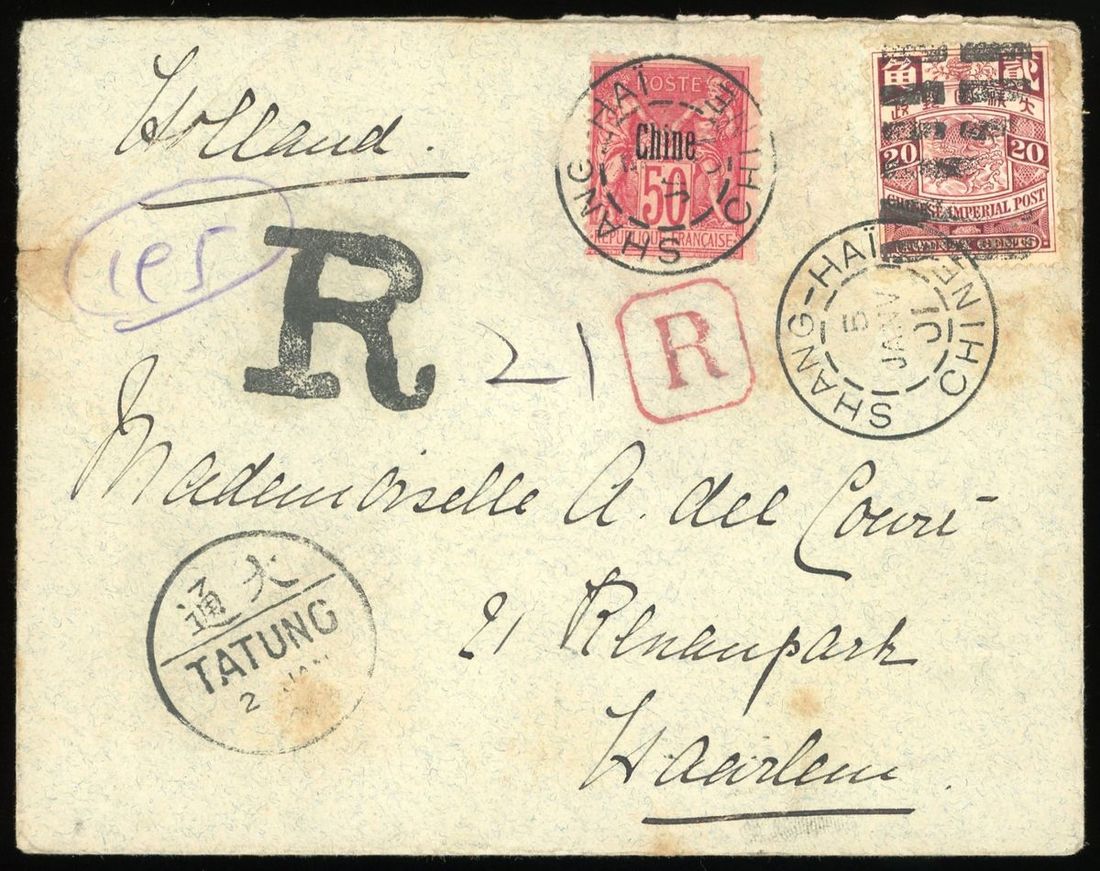 Holland.
195
R
21
R
POSTES
Chine
50
RÉPUBLIQUE FRANÇAISE
SHANG-HAÏ
CHINE
角 貳
20 20
CHINESE IMPERIAL POST
SHANG-HAÏ
5
JANV
01
CHINE
Mademoiselle A. del Court
21 Kenaupark
Haarlem
通大
TATUNG
2 JAN